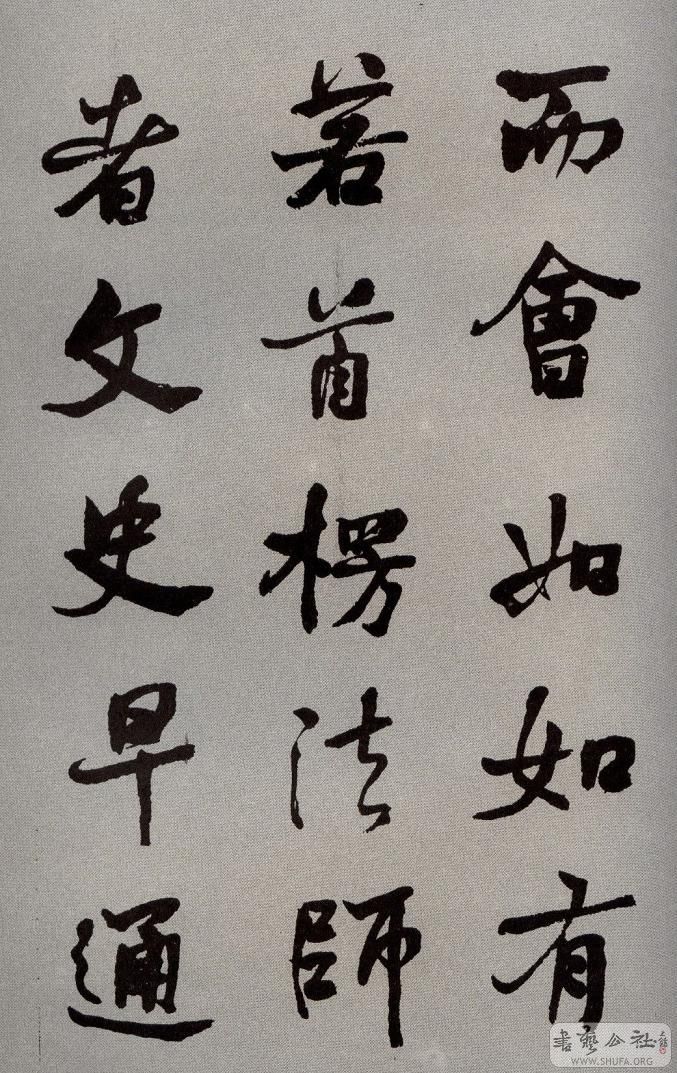 而會如如有
若首楞法師
者文史早通
書藝公社
WWW.SHUFA.ORG